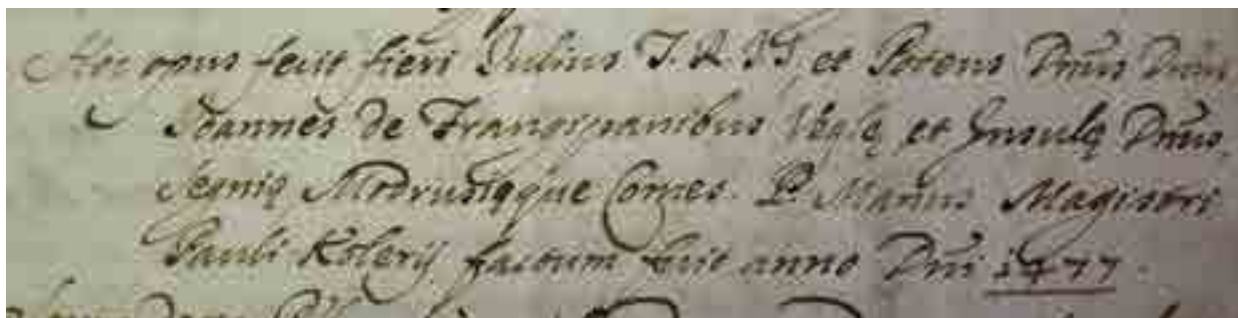 Hoc opus fecit fieri Julius J. A. et Potens Dnūs Dnūs
Joannes de Frangipanibus Veglę et Insulę Dnūs,
Segnię Modrusięque Comes. P. Manus Magistri
Pauli Koleriȷ factum fuit anno Dni 1477.